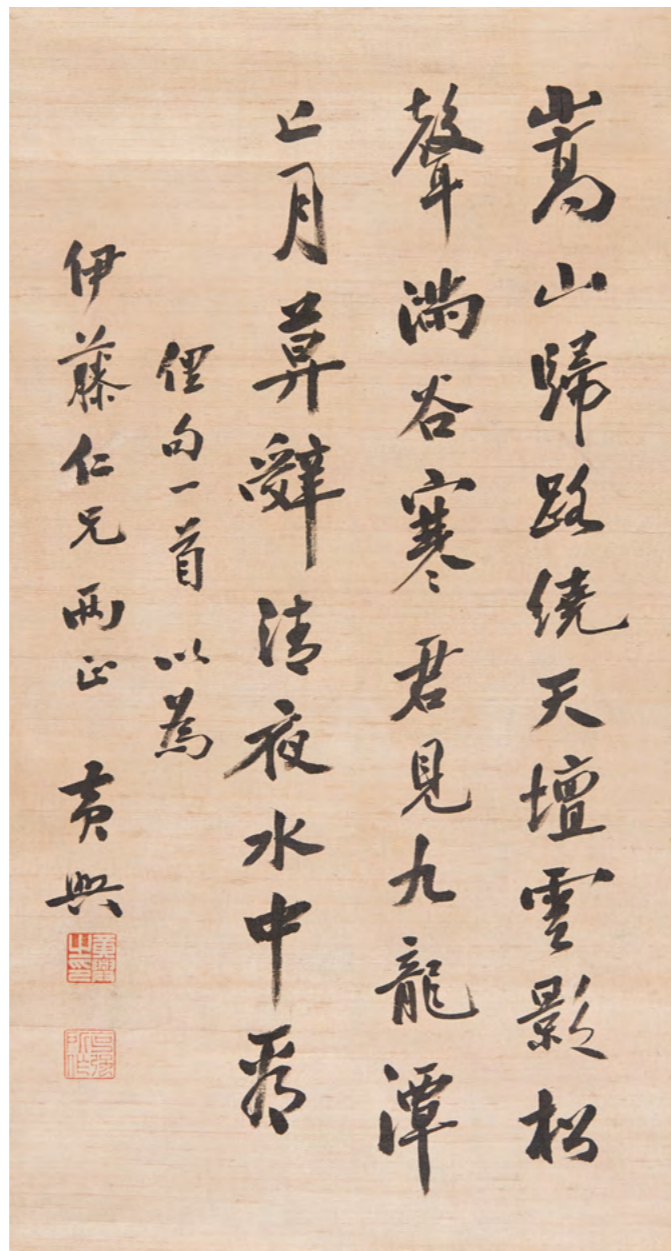 嵩山歸路繞天壇雲影松
聲滿谷寒君見九龍潭
上月莫辭清夜水中看
俚句一首 以為
伊藤仁兄 兩正 黃興
黃興之印